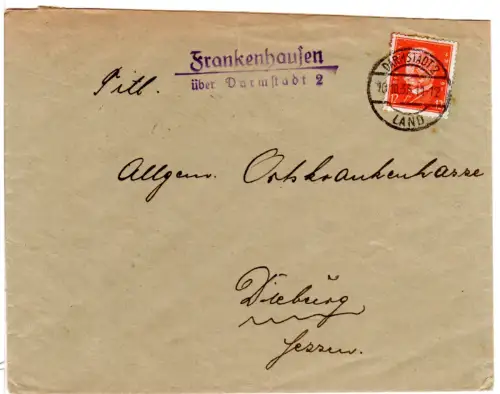 Frankenhausen
über Darmstadt 2
DARMSTADT 2
LAND
Titl.
Allgem. Ortskrankenkasse
Dieburg
Hessen.